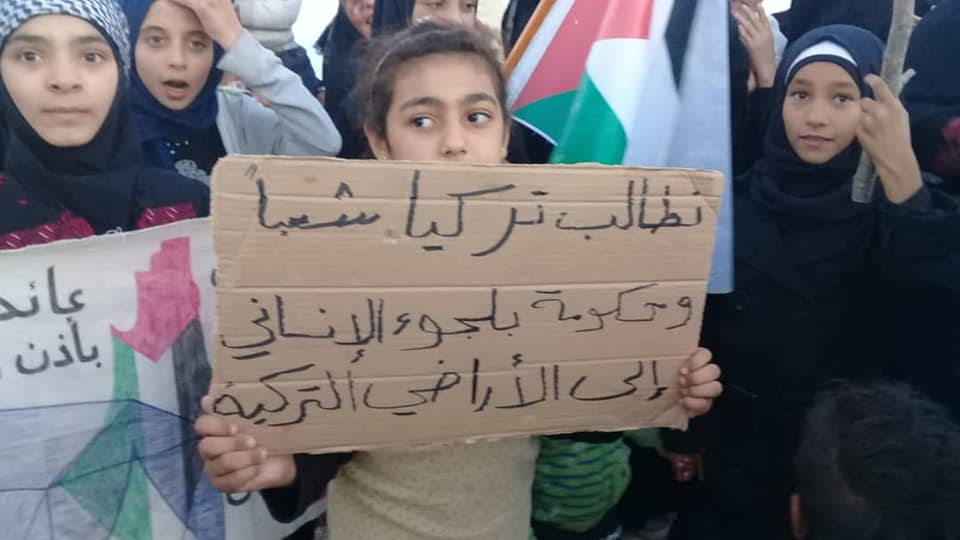 نطالب تركيا شعباً
وحكومة بلجوء الإنساني
إلى الأراضي التركية
عائد
بأذن